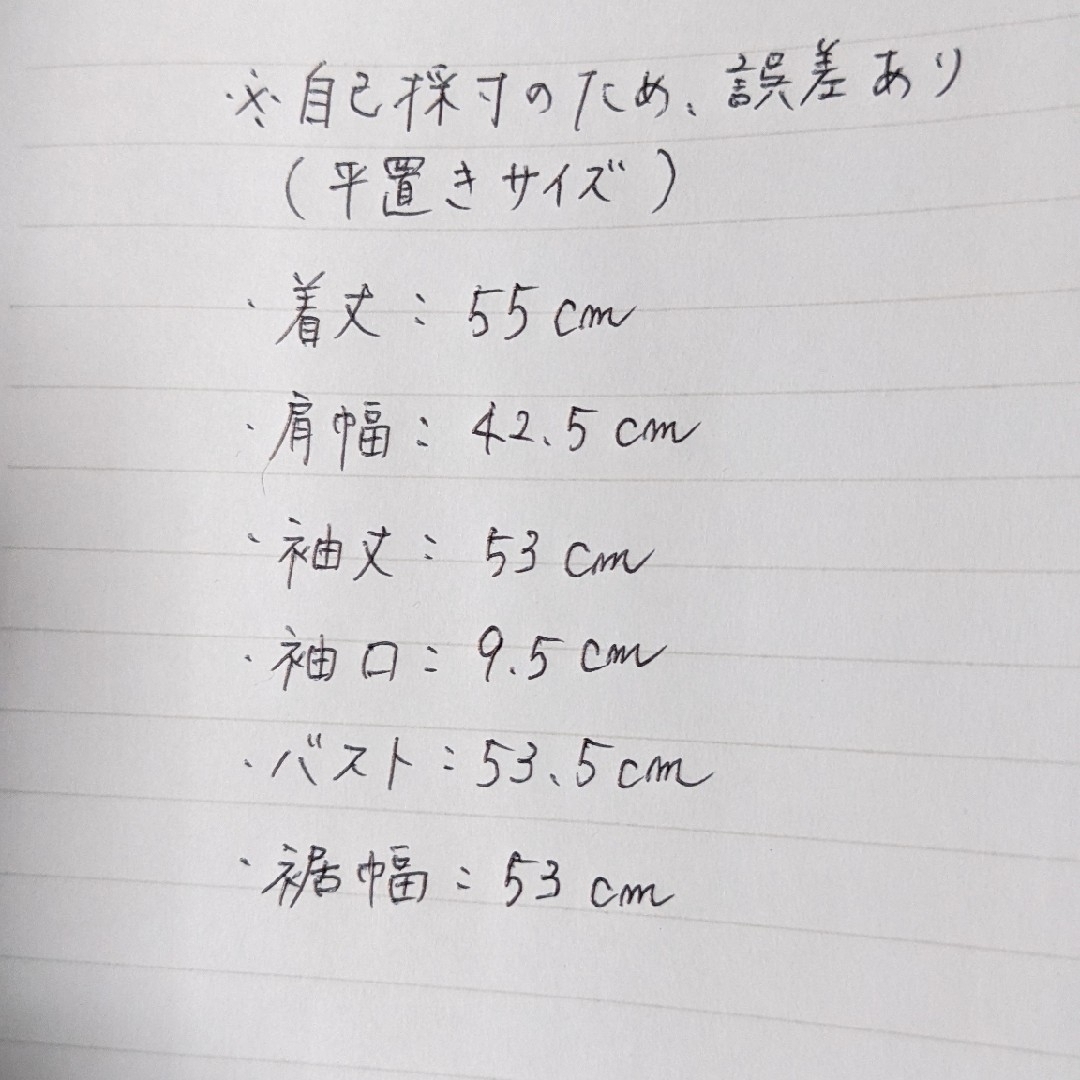 ※自己採寸のため、誤差あり
(平置きサイズ)
・着丈：55cm
・肩幅：42.5cm
・袖丈：53cm
・袖口：9.5cm
・バスト：53.5cm
・裾幅：53cm